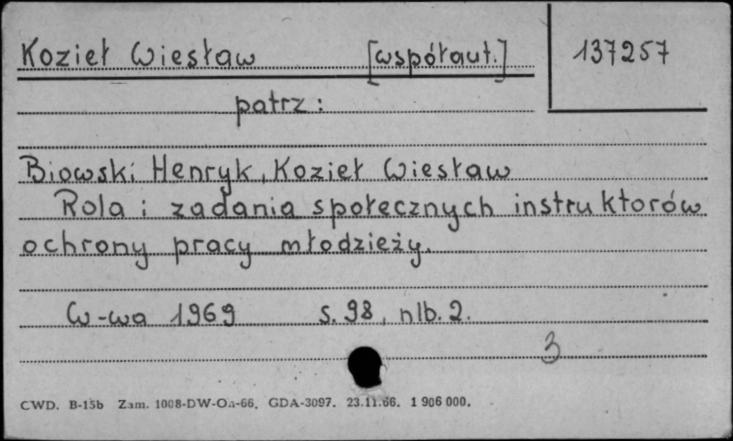 Kozieł Wiesław [współaut.] 137257
patrz:
Biowski Henryk, Kozieł Wiesław
Rola i zadania społecznych instruktorów
ochrony pracy młodzieży.
W-wa 1969 s. 98, nlb. 2.
3
CWD. B-15b Zam. 1008-DW-Oa-66. GDA-3097. 23.11.66. 1 906 000.